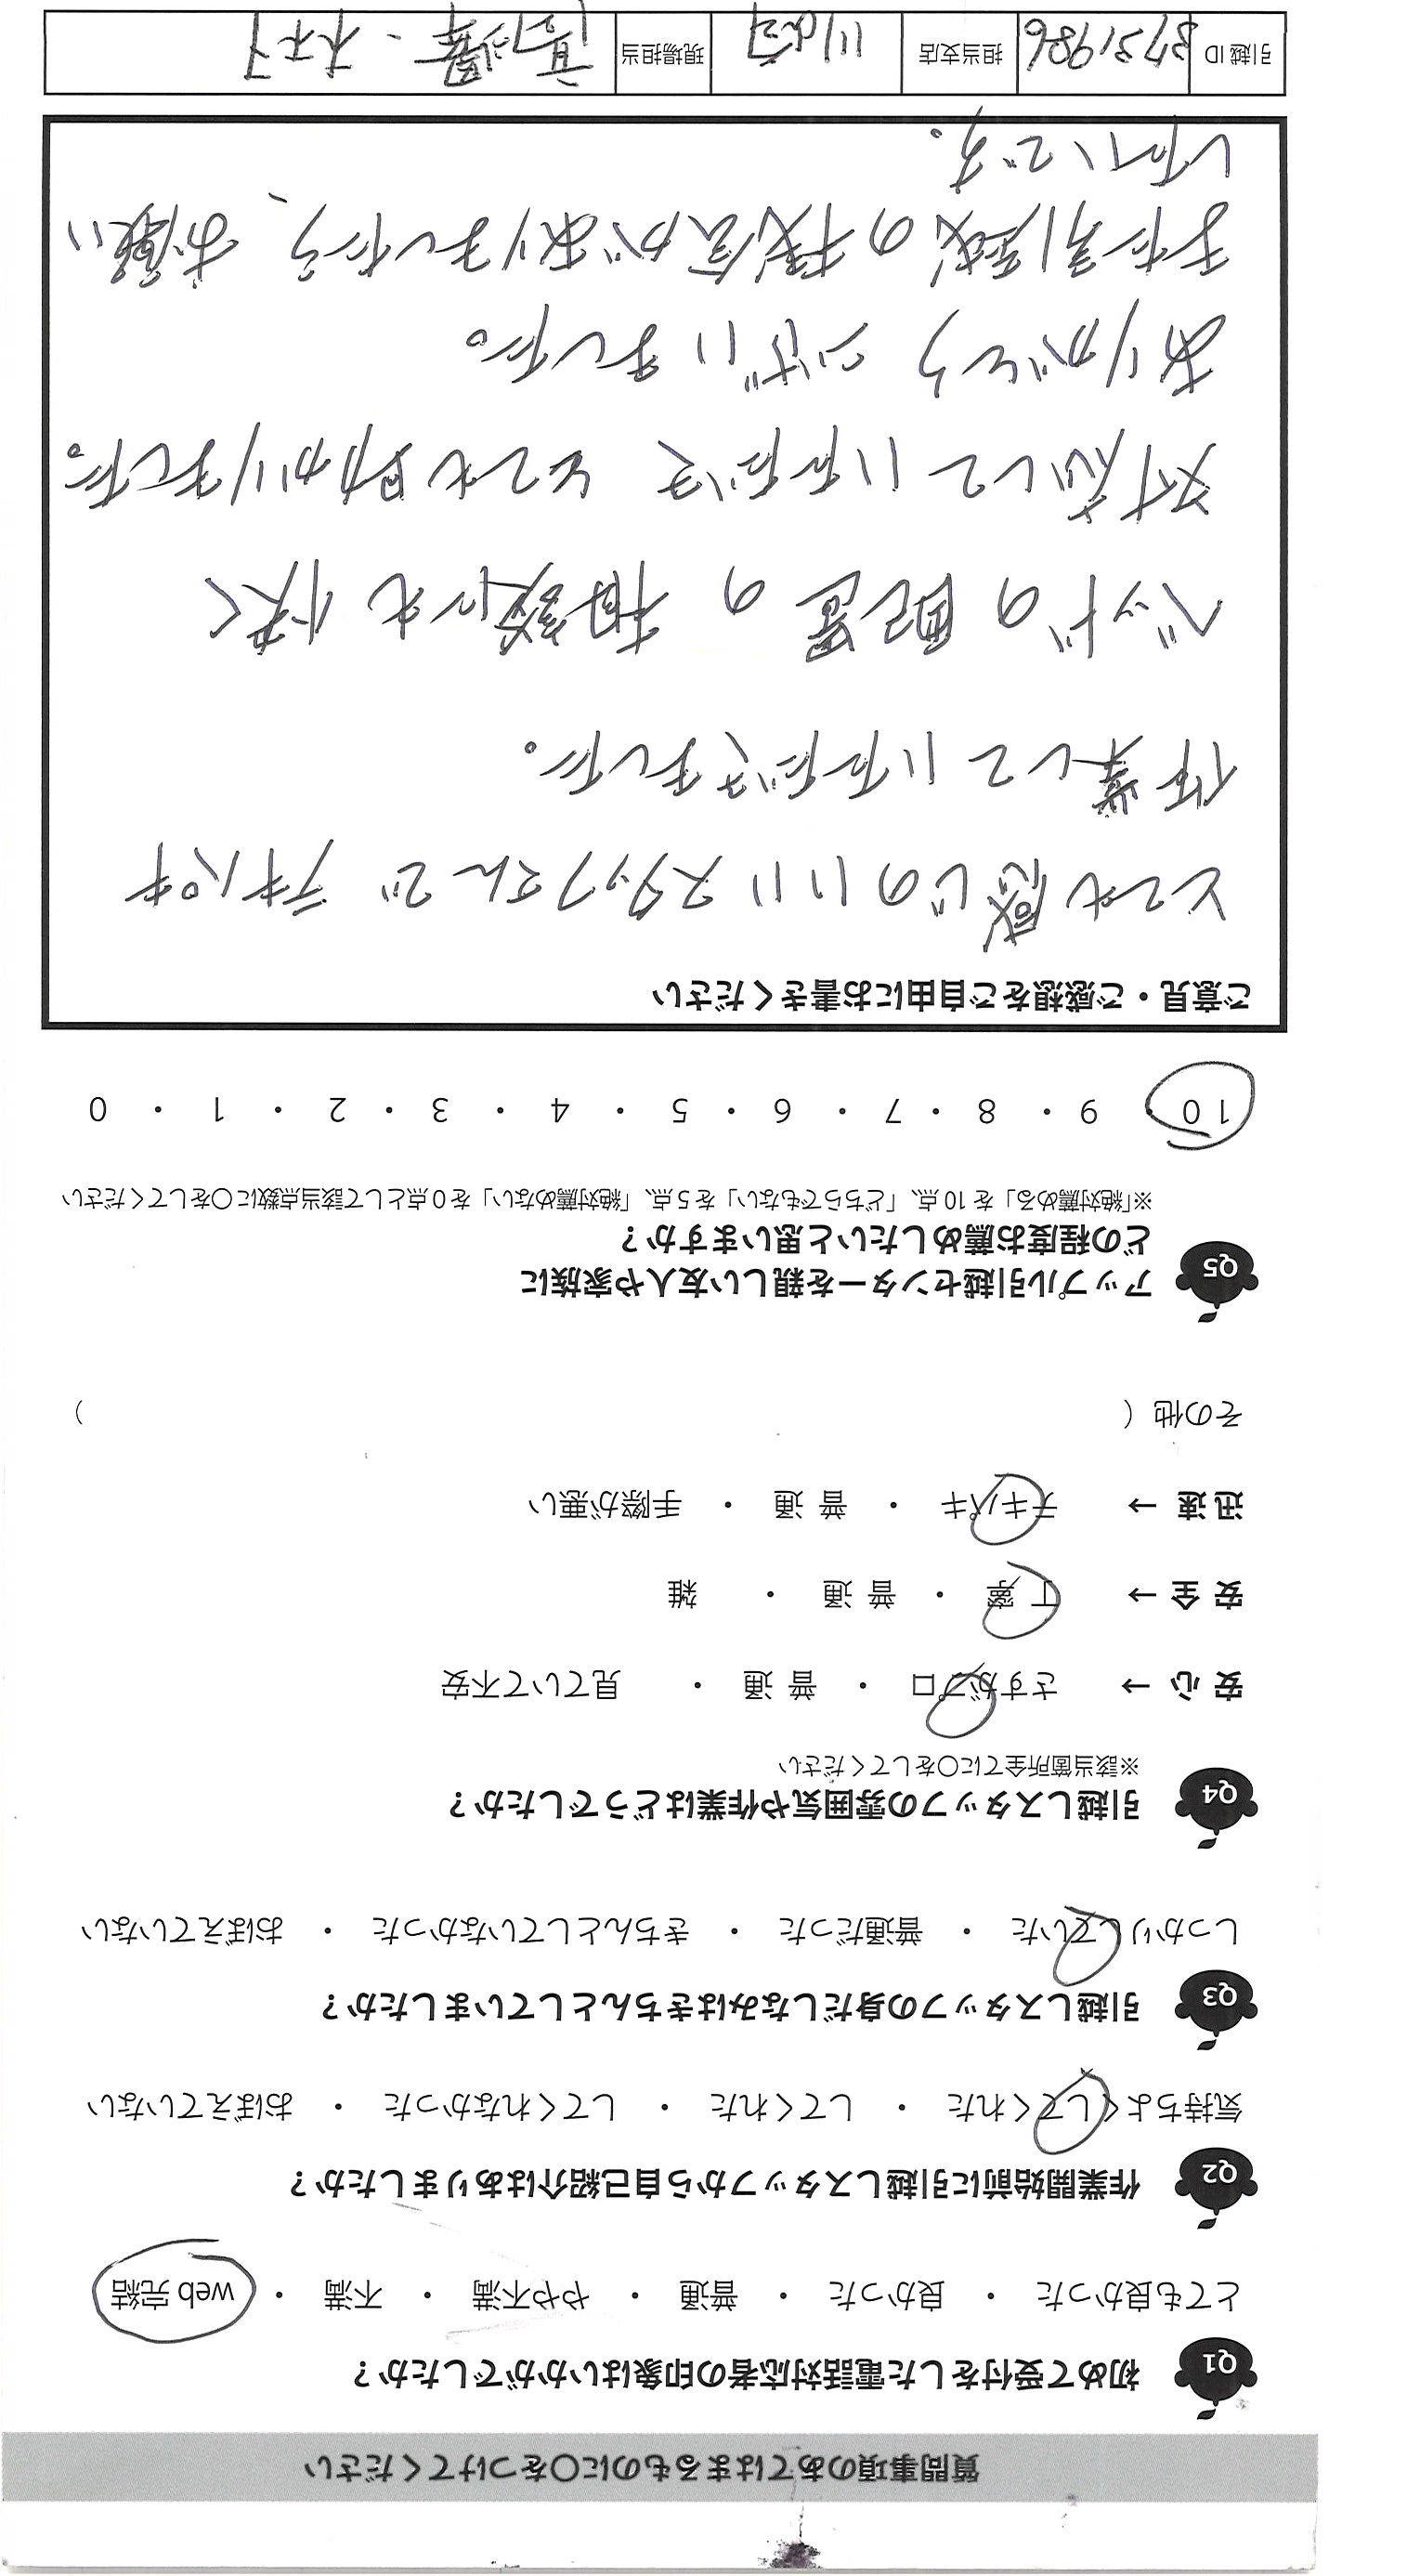 質問事項のあてはまるものに〇をつけてください
Q1 初めて受付をした電話対応者の印象はいかがでしたか？
とても良かった ・ 良かった ・ 普通 ・ やや不満 ・ 不満 ・ web 完結
Q2 作業開始前に引越しスタッフから自己紹介はありましたか？
気持ちよくしてくれた ・ してくれた ・ してくれなかった ・ おぼえていない
Q3 引越しスタッフの身だしなみはきちんとしていましたか？
しっかりしていた ・ 普通だった ・ きちんとしていなかった ・ おぼえていない
Q4 引越しスタッフの雰囲気や作業はどうでしたか？
※該当箇所全てに〇をしてください
安 心 → さすがプロ ・ 普 通 ・ 見ていて不安
安 全 → 丁 寧 ・ 普 通 ・ 雑
迅 速 → テキパキ ・ 普 通 ・ 手際が悪い
その他（ ）
Q5 アップル引越センターを親しい友人や家族に
どの程度お薦めしたいと思いますか？
※「絶対薦める」を 10 点、「どちらでもない」を 5 点、「絶対薦めない」を 0 点として該当点数に〇をしてください
10 ・ 9 ・ 8 ・ 7 ・ 6 ・ 5 ・ 4 ・ 3 ・ 2 ・ 1 ・ 0
ご意見・ご感想をご自由にお書きください
とても感じのいいスタッフさんで テキパキ
作業していただきました。
ベッドの配置の相談にも快く
対応していただき とても助かりました。
ありがとうございました。
また引越の機会がありましたら、お願い
したいです。
引越 ID 3731986 担当支店 川崎 現場担当 高澤・